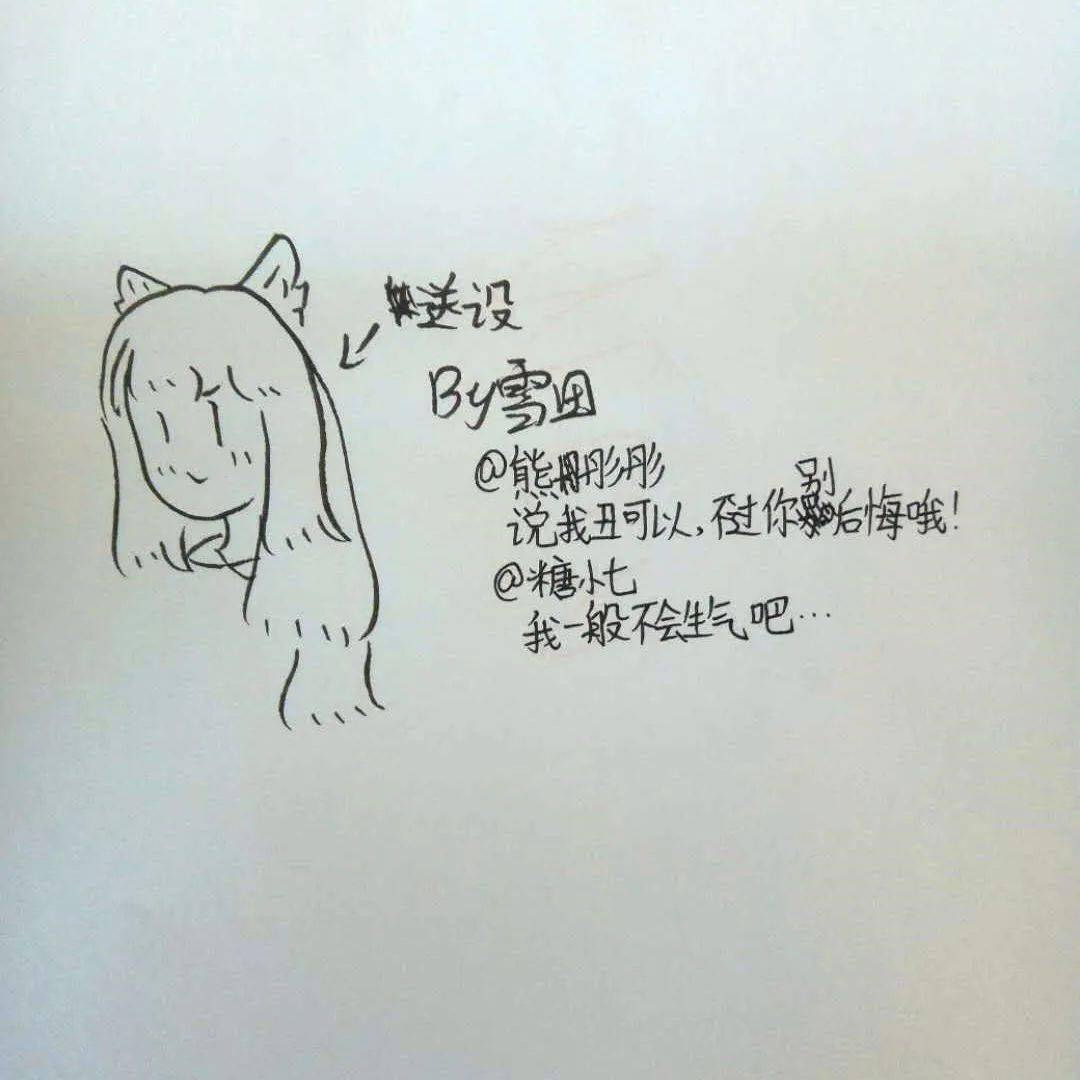 送设
By雪团
@熊彤彤
说我丑可以,不过你别后悔哦!
@糖小七
我一般不会生气吧…